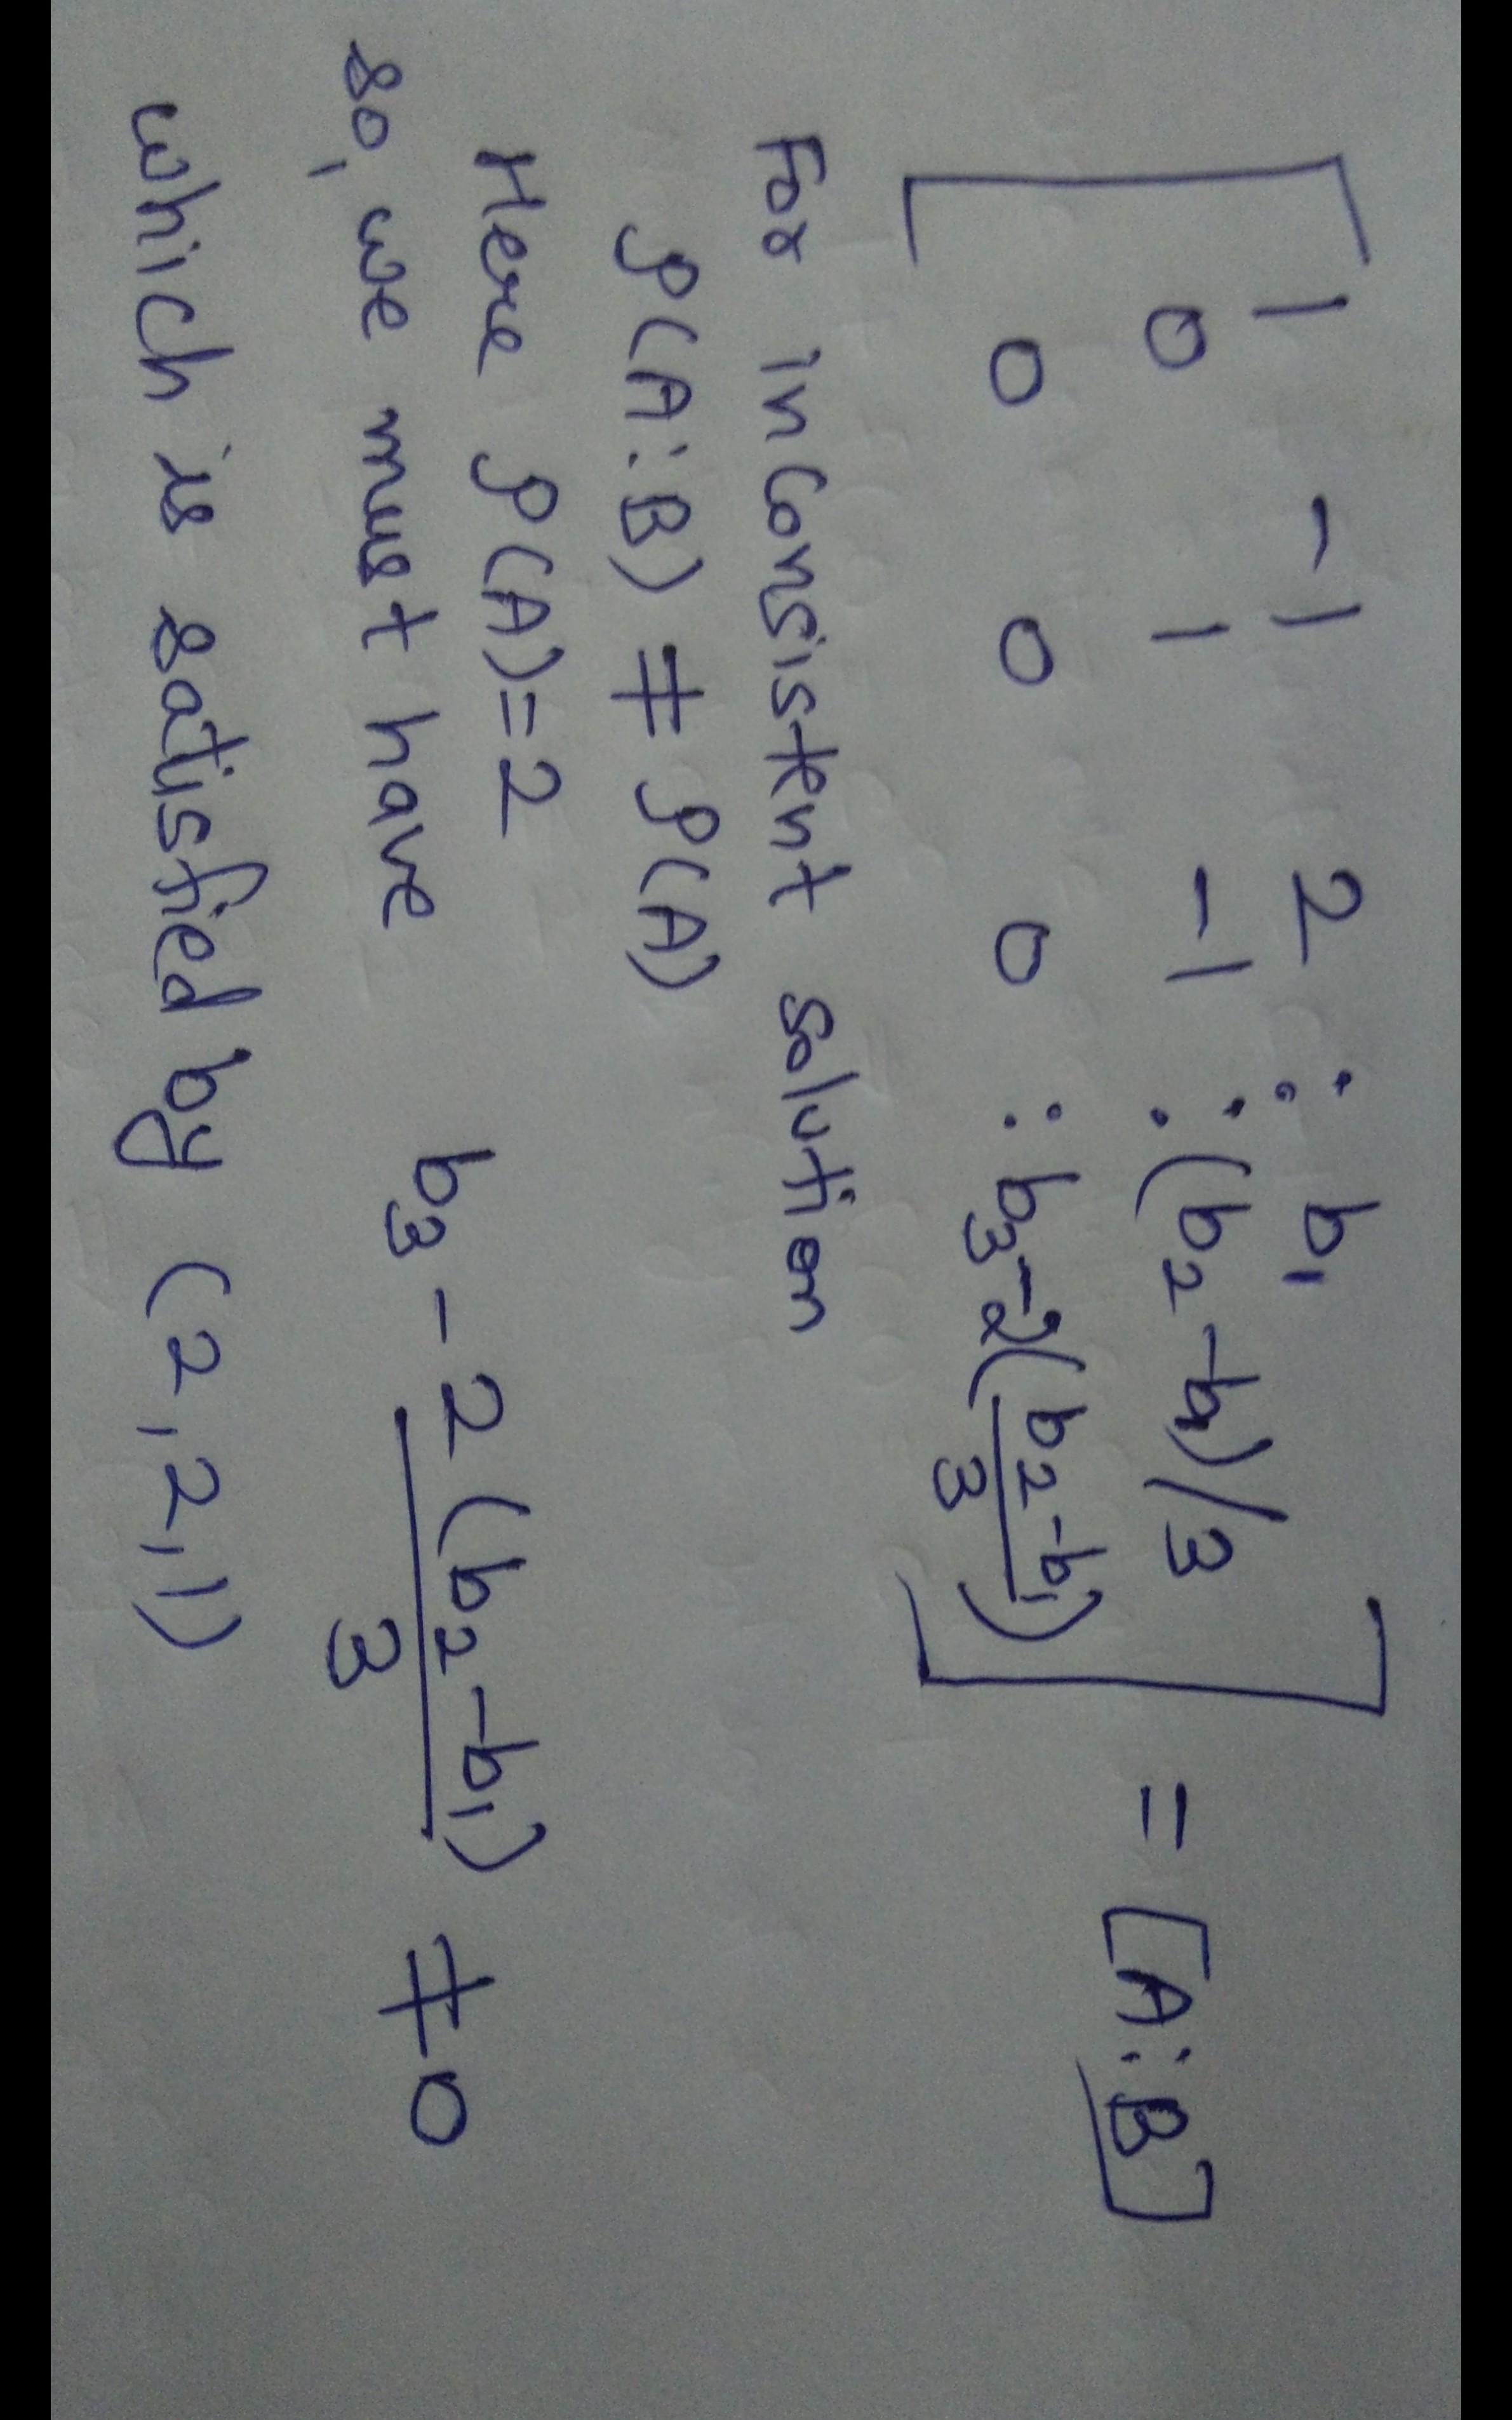 1 -1 2 : b₁
0 1 -1 : (b₂-b₁)/3 = [A:B]
0 0 0 : b₃-2(b₂-b₁/3)
For inconsistent solution
ρ(A:B) ≠ ρ(A)
Here ρ(A)=2
so, we must have b₃ - 2(b₂-b₁)/3 ≠ 0
which is satisfied by (2,2,1)